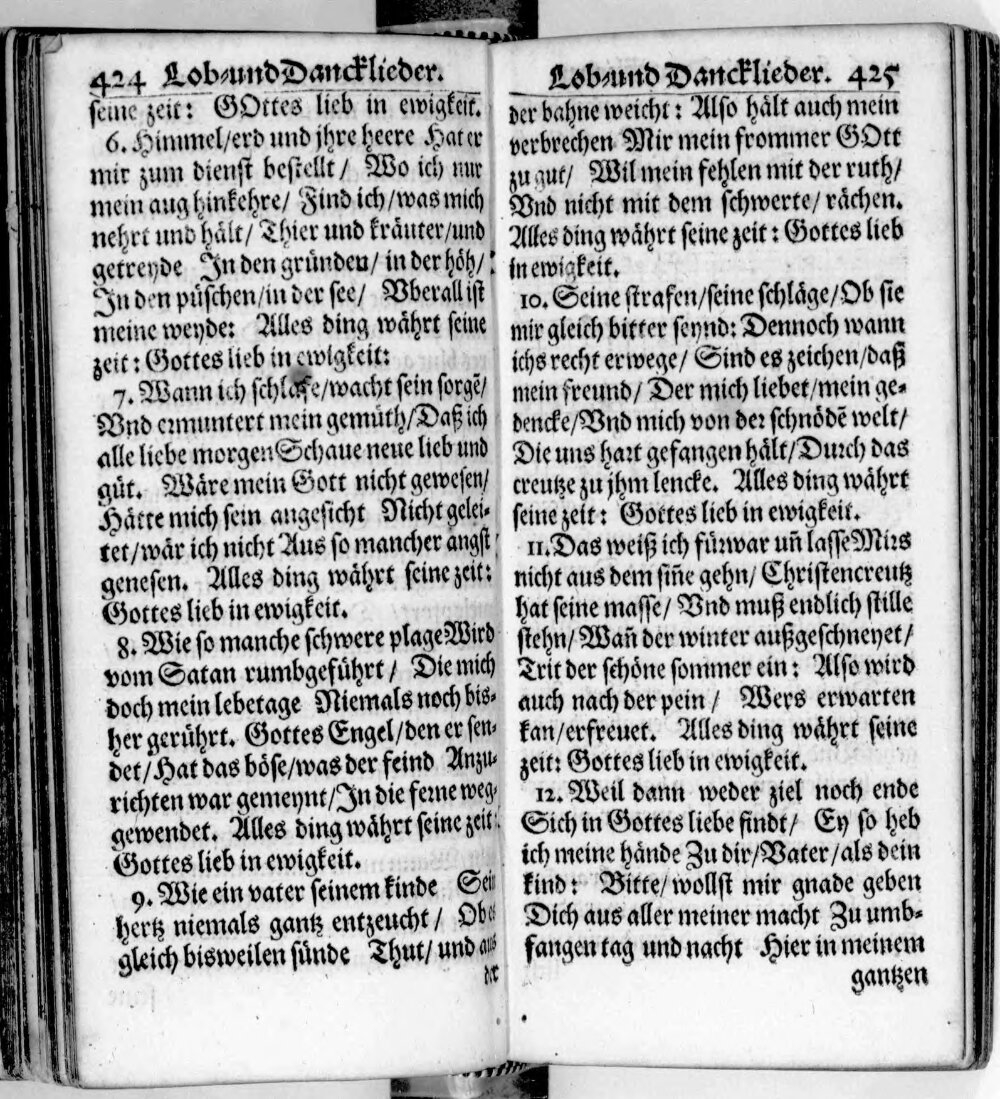 424 Lob-und Dancklieder.
seine zeit: GOttes lieb in ewigkeit.
6. Himmel/erd und jhre heere Hat er
mir zum dienst bestellt/ Wo ich nur
mein aug hinkehre/ Find ich/was mich
nehrt und hält/ Thier und kräuter/und
getreyde In den gründen/ in der höh/
In den püschen/in der see/ Vberall ist
meine weyde: Alles ding währt seine
zeit: Gottes lieb in ewigkeit:
7. Wann ich schlafe/wacht sein sorgẽ/
Vnd ermuntert mein gemüth/Daß ich
alle liebe morgen Schaue neue lieb und
güt. Wäre mein Gott nicht gewesen/
Hätte mich sein angesicht Nicht gelei-
tet/wär ich nicht Aus so mancher angst
genesen. Alles ding währt seine zeit:
Gottes lieb in ewigkeit.
8. Wie so manche schwere plage Wird
vom Satan rumbgeführt/ Die mich
doch mein lebetage Niemals noch bis-
her gerührt. Gottes Engel/den er sen-
det/Hat das böse/was der feind Anzu-
richten war gemeynt/In die ferne weg-
gewendet. Alles ding währt seine zeit:
Gottes lieb in ewigkeit.
9. Wie ein vater seinem kinde Sein
hertz niemals gantz entzeucht/ Ob es
gleich bisweilen sünde Thut/ und aus
der
Lob-und Dancklieder. 425
der bahne weicht: Also hält auch mein
verbrechen Mir mein frommer GOtt
zu gut/ Wil mein fehlen mit der ruth/
Vnd nicht mit dem schwerte/ rächen.
Alles ding währt seine zeit: Gottes lieb
in ewigkeit.
10. Seine strafen/seine schläge/Ob sie
mir gleich bitter seynd: Dennoch wann
ichs recht erwege/ Sind es zeichen/daß
mein freund/ Der mich liebet/mein ge-
dencke/Vnd mich von der schnödẽ welt/
Die uns hart gefangen hält/Durch das
creutze zu jhm lencke. Alles ding währt
seine zeit: Gottes lieb in ewigkeit.
11. Das weiß ich fürwar un̄ lasse Mirs
nicht aus dem sin̄e gehn/ Christencreutz
hat seine masse/ Vnd muß endlich stille
stehn/ Wan̄ der winter außgeschneyet/
Trit der schöne sommer ein: Also wird
auch nach der pein/ Wers erwarten
kan/erfreuet. Alles ding währt seine
zeit: Gottes lieb in ewigkeit.
12. Weil dann weder ziel noch ende
Sich in Gottes liebe findt/ Ey so heb
ich meine hände Zu dir/Vater/als dein
kind: Bitte/ wollst mir gnade geben
Dich aus aller meiner macht Zu umb-
fangen tag und nacht Hier in meinem
gantzen